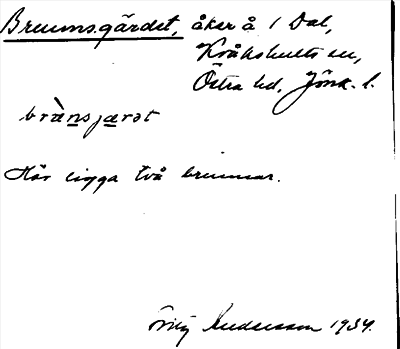 Brunnsgärdet, åker å 1 Dal,
Kråkshults sn,
Östra hd, Jönk. l.
brànsjærət
Här ligga två brunnar.
Andersson 1934.